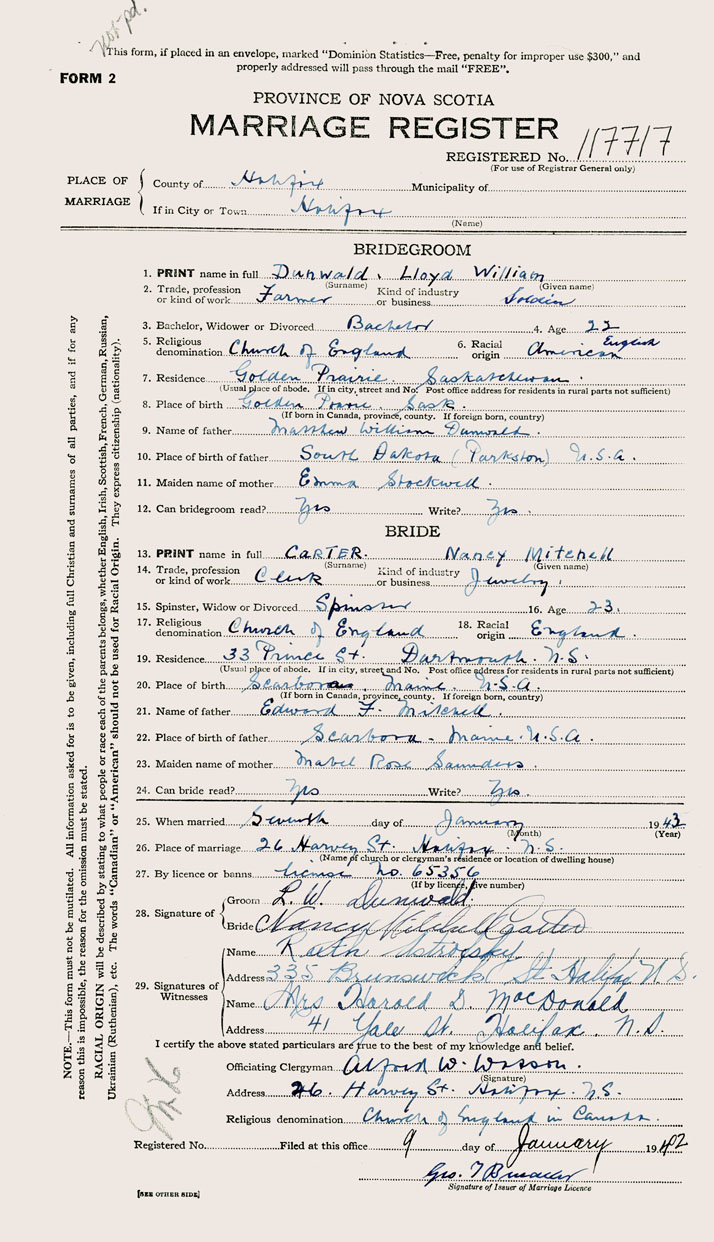 Not pd.
This form, if placed in an envelope, marked "Dominion Statistics—Free, penalty for improper use $300," and
properly addressed will pass through the mail "FREE".
FORM 2
PROVINCE OF NOVA SCOTIA
MARRIAGE REGISTER
REGISTERED No. 117717
(For use of Registrar General only)
PLACE OF MARRIAGE
County of Halifax Municipality of
If in City or Town Halifax
(Name)
BRIDEGROOM
1. PRINT name in full Dunwald, Lloyd William
(Surname) (Given name)
2. Trade, profession or kind of work Farmer Kind of industry or business Soldier
3. Bachelor, Widower or Divorced Bachelor 4. Age 22
5. Religious denomination Church of England 6. Racial origin American English
7. Residence Golden Prairie, Saskatchewan.
(Usual place of abode. If in city, street and No. Post office address for residents in rural parts not sufficient)
8. Place of birth Golden Prairie, Sask.
(If born in Canada, province, county. If foreign born, country)
9. Name of father Matthew William Dunwald.
10. Place of birth of father South Dakota (Parkston) U.S.A.
11. Maiden name of mother Emma Stockwell.
12. Can bridegroom read? Yes Write? Yes.
BRIDE
13. PRINT name in full CARTER. Nancy Mitchell
(Surname) (Given name)
14. Trade, profession or kind of work Clerk Kind of industry or business Jewelry.
15. Spinster, Widow or Divorced Spinster 16. Age 23.
17. Religious denomination Church of England 18. Racial origin England.
19. Residence 33 Prince St. Dartmouth. N.S.
(Usual place of abode. If in city, street and No. Post office address for residents in rural parts not sufficient)
20. Place of birth Maine. U.S.A.
(If born in Canada, province, county. If foreign born, country)
21. Name of father Edward F. Mitchell.
22. Place of birth of father Scarboro - Maine. U.S.A.
23. Maiden name of mother Mabel Rose Saunders.
24. Can bride read? Yes Write? Yes.
25. When married Seventh day of January 1943
(Month) (Year)
26. Place of marriage 26 Harvey St. Halifax N.S.
(Name of church or clergyman's residence or location of dwelling house)
27. By licence or banns license No. 65356
(If by licence, give number)
28. Signature of
Groom L. W. Dunwald
Bride Nancy Mitchell Carter
29. Signatures of Witnesses
Name Ruth Ostrofsky
Address 335 Brunswick St. Halifax N.S.
Name Mrs Harold D. MacDonald
Address 41 Yale St. Halifax. N.S.
I certify the above stated particulars are true to the best of my knowledge and belief.
Officiating Clergyman Alfred W. Watson.
(Signature)
Address 26. Harvey St. Halifax. N.S.
Religious denomination Church of England in Canada.
Registered No. Filed at this office 9 day of January 1942
Geo. T
Signature of Issuer of Marriage Licence
[SEE OTHER SIDE]
NOTE.—This form must not be mutilated. All information asked for is to be given, including full Christian and surnames of all parties, and if for any
reason this is impossible, the reason for the omission must be stated.
RACIAL ORIGIN will be described by stating to what people or race each of the parents belongs, whether English, Irish, Scottish, French, German, Russian,
Ukrainian (Ruthenian), etc. The words "Canadian" or "American" should not be used for Racial Origin. They express citizenship (nationality).